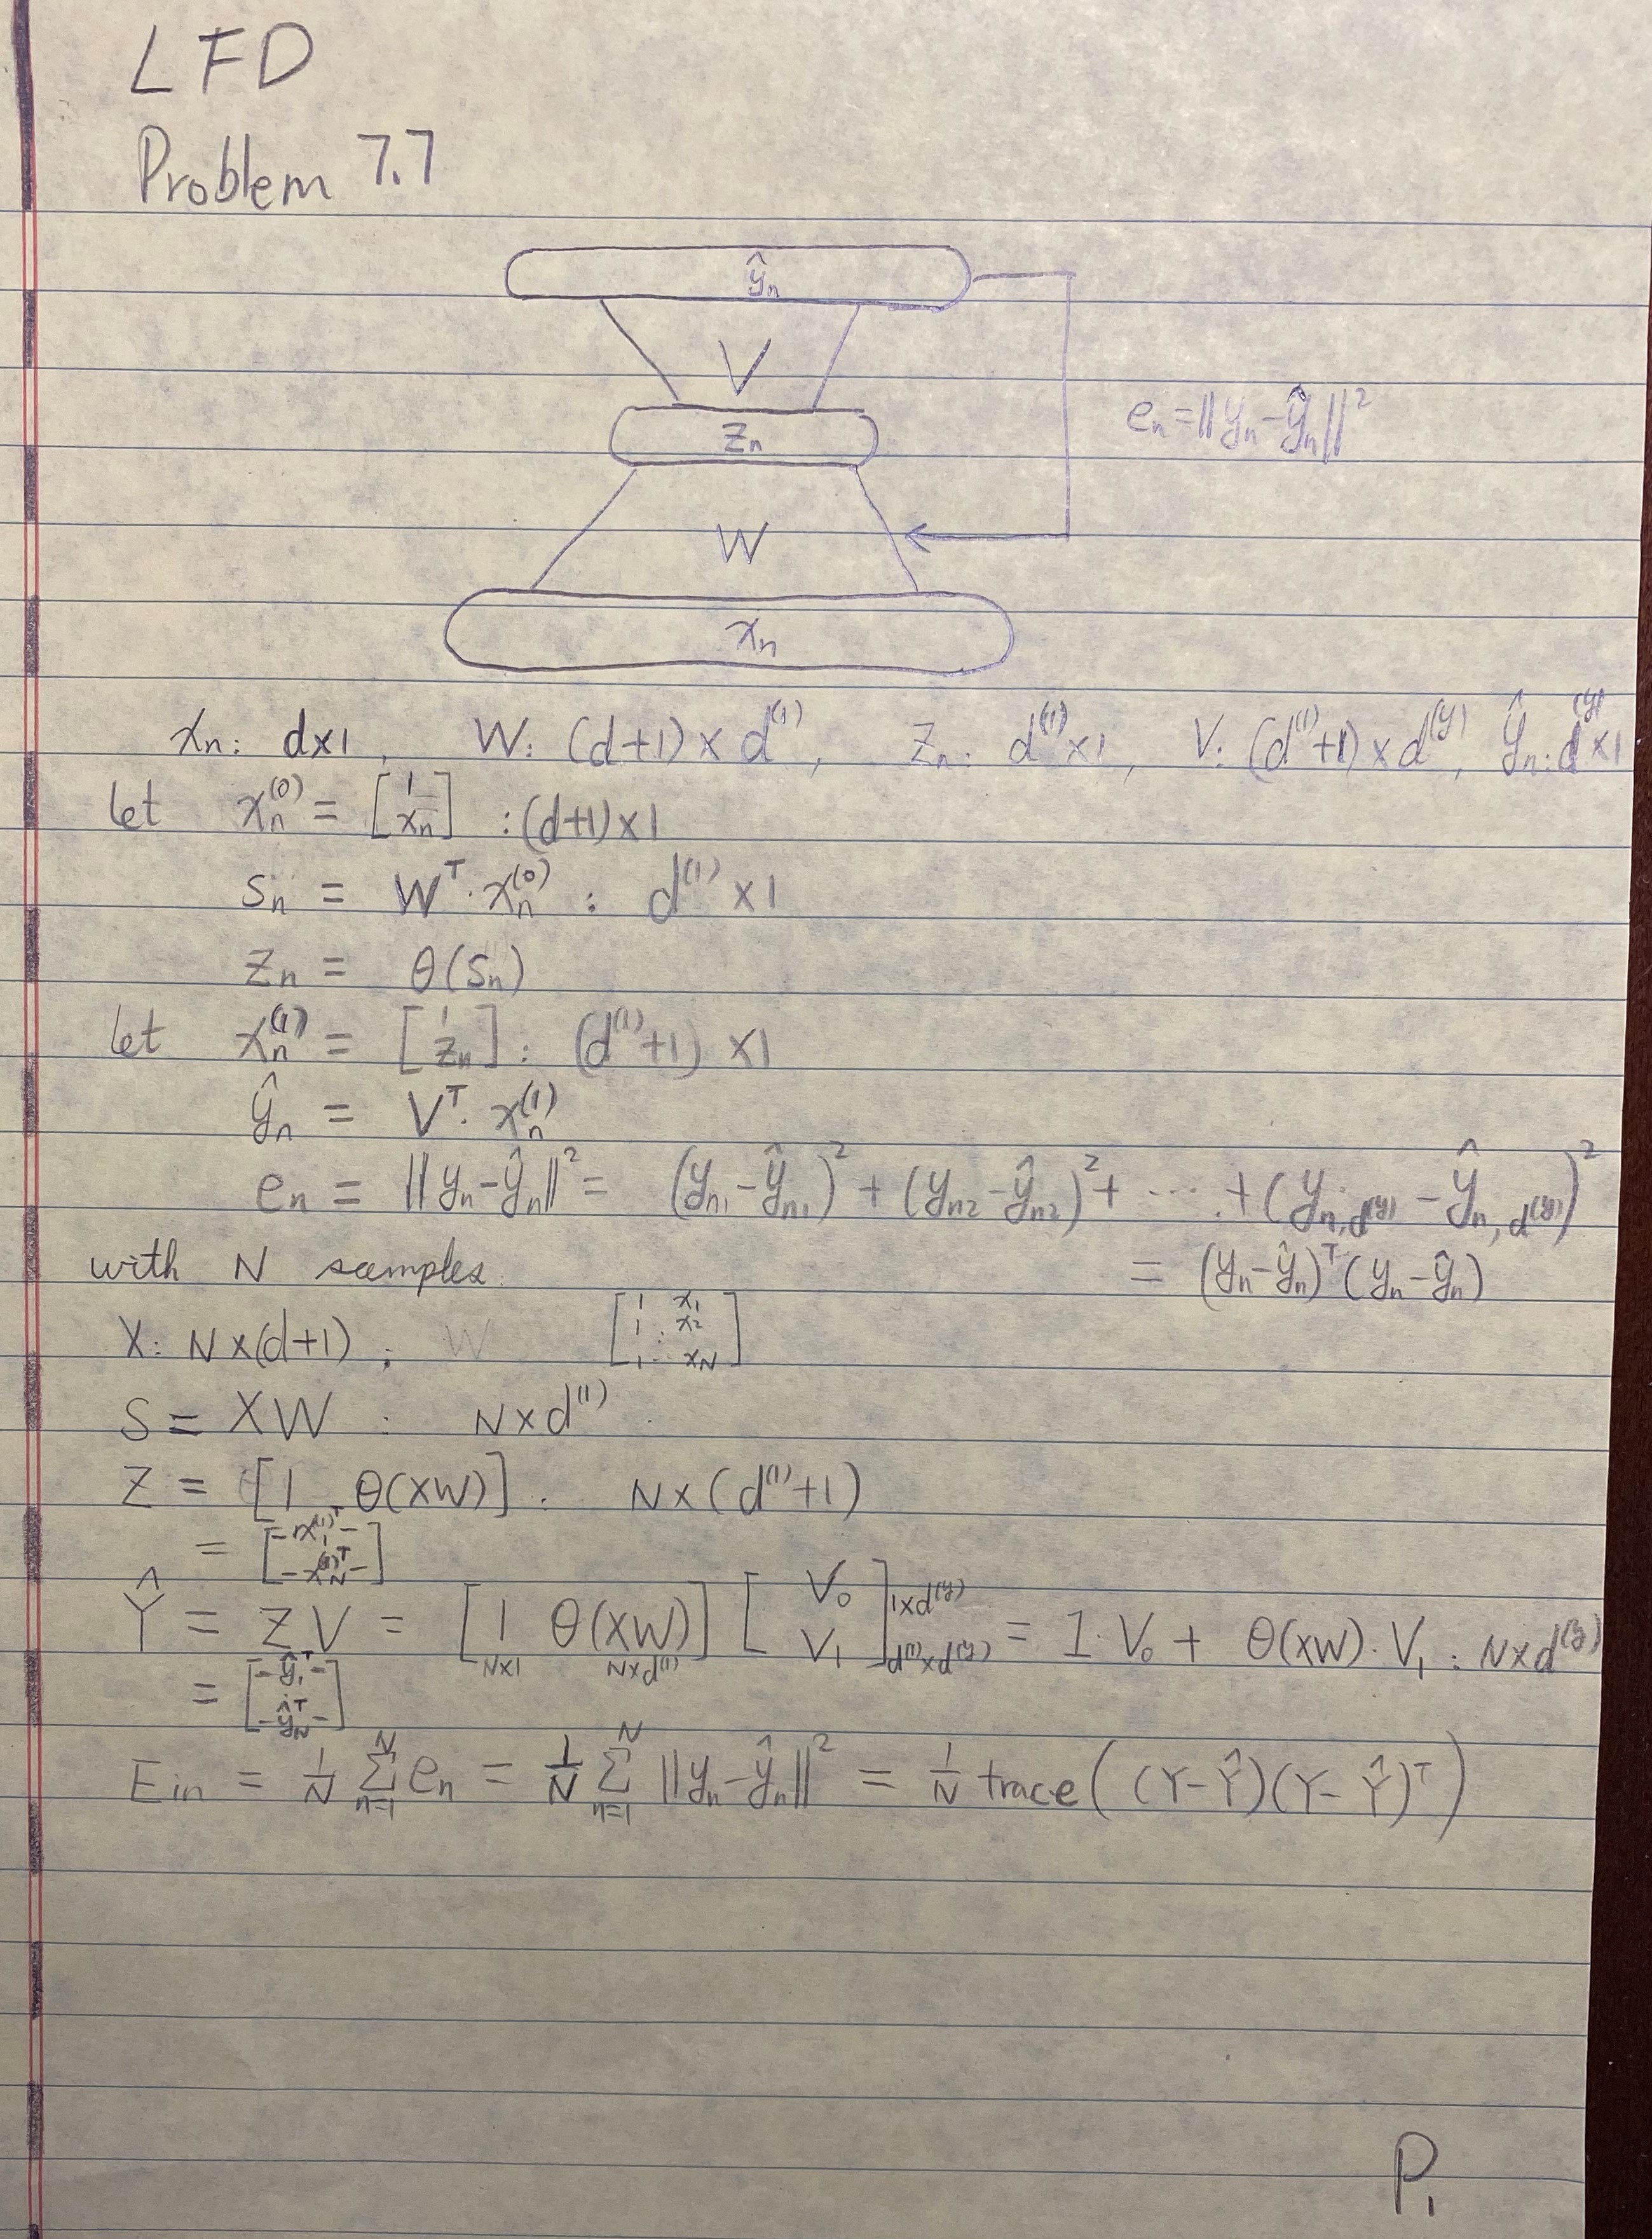 LFD
Problem 7.7
ŷₙ
V
zₙ
eₙ = ||yₙ - ŷₙ||²
W
xₙ
xₙ: d×1, W: (d+1) × d⁽¹⁾, zₙ: d⁽¹⁾×1, V: (d⁽¹⁾+1) × d⁽ʸ⁾, ŷₙ: d⁽ʸ⁾×1
let xₙ⁽⁰⁾ = [1 / xₙ] : (d+1)×1
sₙ = Wᵀ · xₙ⁽⁰⁾ : d⁽¹⁾ ×1
zₙ = θ(sₙ)
let xₙ⁽¹⁾ = [1 / zₙ] : (d⁽¹⁾+1) ×1
ŷₙ = Vᵀ · xₙ⁽¹⁾
eₙ = ||yₙ - ŷₙ||² = (yₙ₁ - ŷₙ₁)² + (yₙ₂ - ŷₙ₂)² + ··· + (y_{n,d⁽ʸ⁾} - ŷ_{n,d⁽ʸ⁾})²
= (yₙ - ŷₙ)ᵀ (yₙ - ŷₙ)
with N samples
X: N×(d+1) ; W [1 x₁ / 1 x₂ / : / 1 x_N]
S = XW : N×d⁽¹⁾
Z = [1, θ(XW)] : N×(d⁽¹⁾+1)
= [-x₁⁽¹⁾ᵀ- / -x_N⁽¹⁾ᵀ-]
Ŷ = ZV = [1_{N×1} θ(XW)_{N×d⁽¹⁾}] [V₀ / V₁]_{1×d⁽ʸ⁾ / d⁽¹⁾×d⁽ʸ⁾} = 1·V₀ + θ(XW)·V₁ : N×d⁽ʸ⁾
= [-ŷ₁ᵀ- / : / -ŷ_Nᵀ-]
Ein = 1/N Σ_{n=1}^{N} eₙ = 1/N Σ_{n=1}^{N} ||yₙ - ŷₙ||² = 1/N trace( (Y-Ŷ)(Y-Ŷ)ᵀ )
P₁